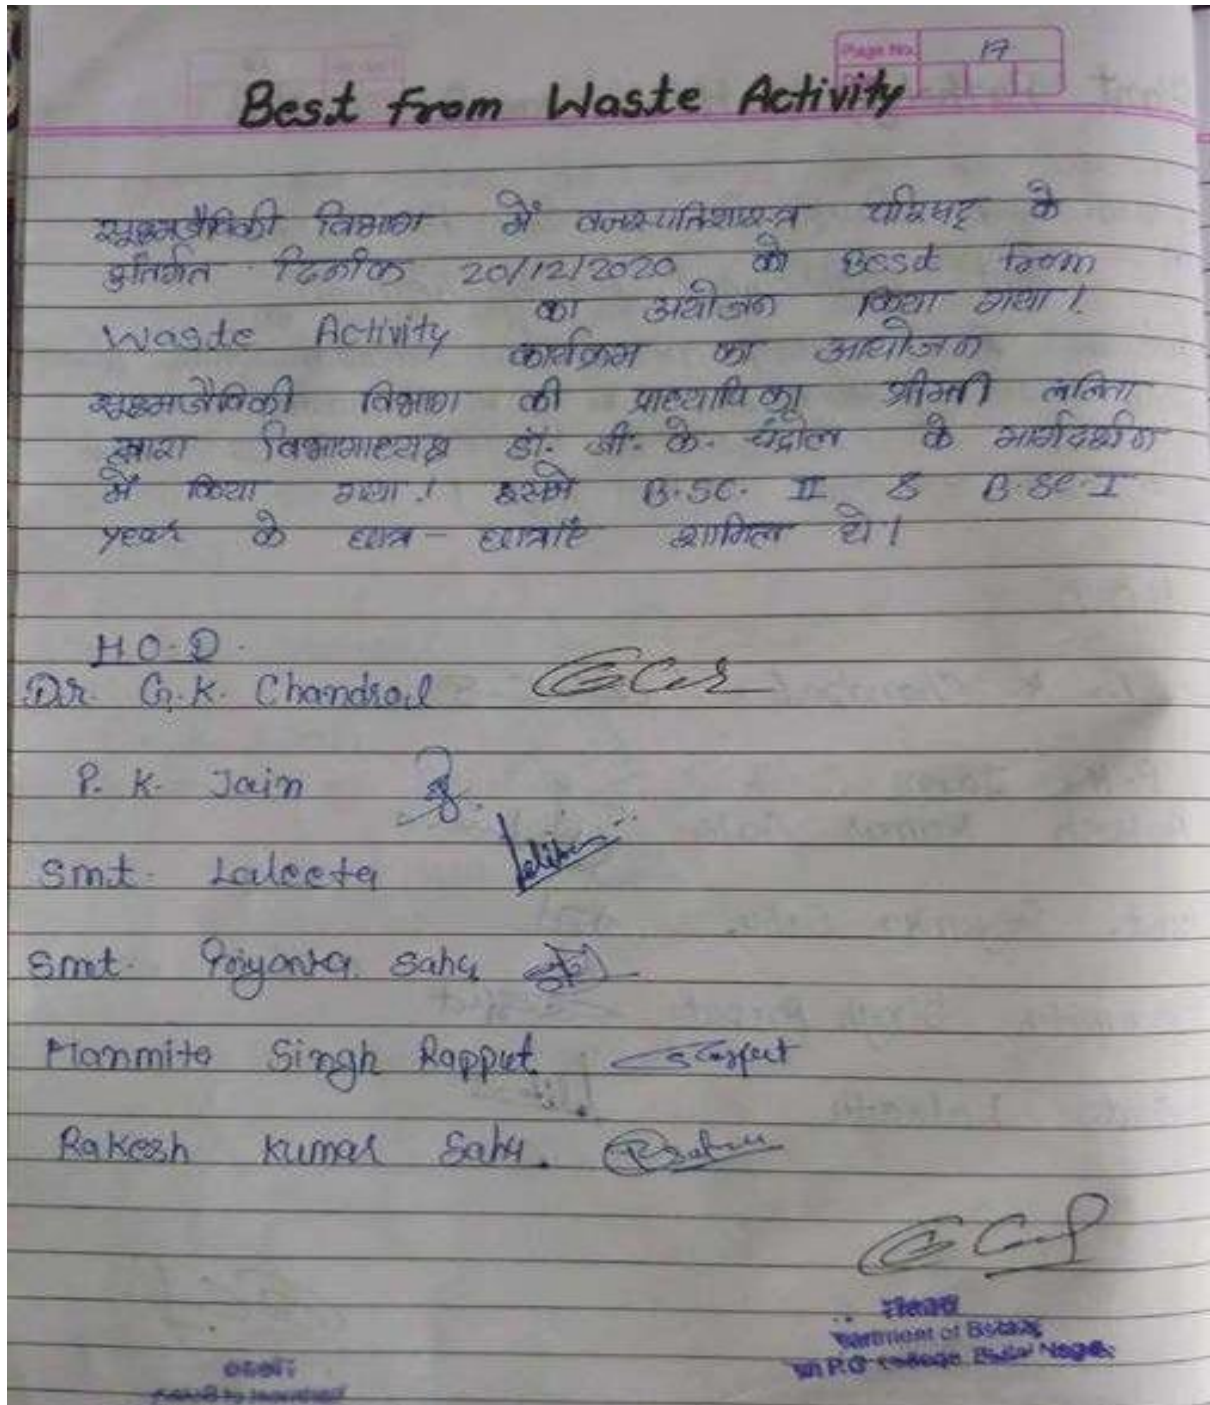 Page No. 17
Best from Waste Activity
सूक्ष्मजैविकी विभाग में वनस्पतिशास्त्र परिषद् के
अंतर्गत दिनांक 20/12/2020 को Best from
Waste Activity का अयोजन किया गया।
कार्यक्रम का आयोजन
सूक्ष्मजैविकी विभाग की प्राध्यापिका श्रीमती ललिता
द्वारा विभागाध्यक्ष डॉ. जी. के. चंद्रौल के मार्गदर्शन
में किया गया। इसमें B.SC. II & B.SC. I
year के छात्र - छात्राएं शामिल थे।
H.O.D.
Dr. G.K. Chandraol
P. K. Jain
Smt. Laleeta
Smt. Priyanka Sahu
Manmite Singh Rapput
Rakesh Kumar Sahu.
of Botany
P.G College Nagar